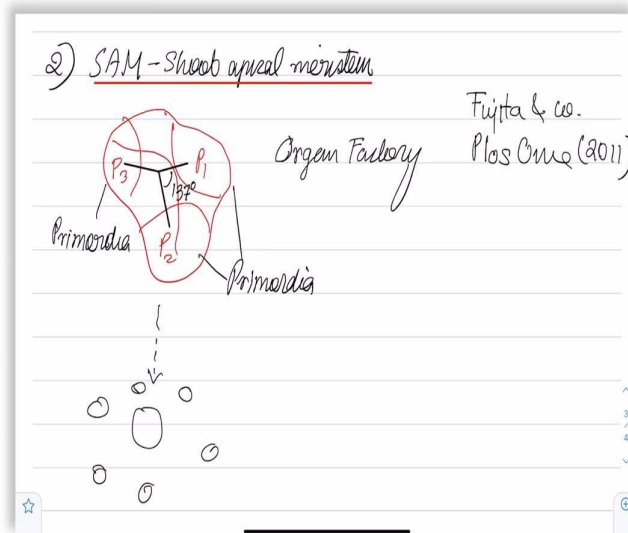 2) SAM - Shoot apical meristem
Fujita & co.
Plos One (2011)
Organ Factory
P3
P1
137°
P2
Primordia
Primordia